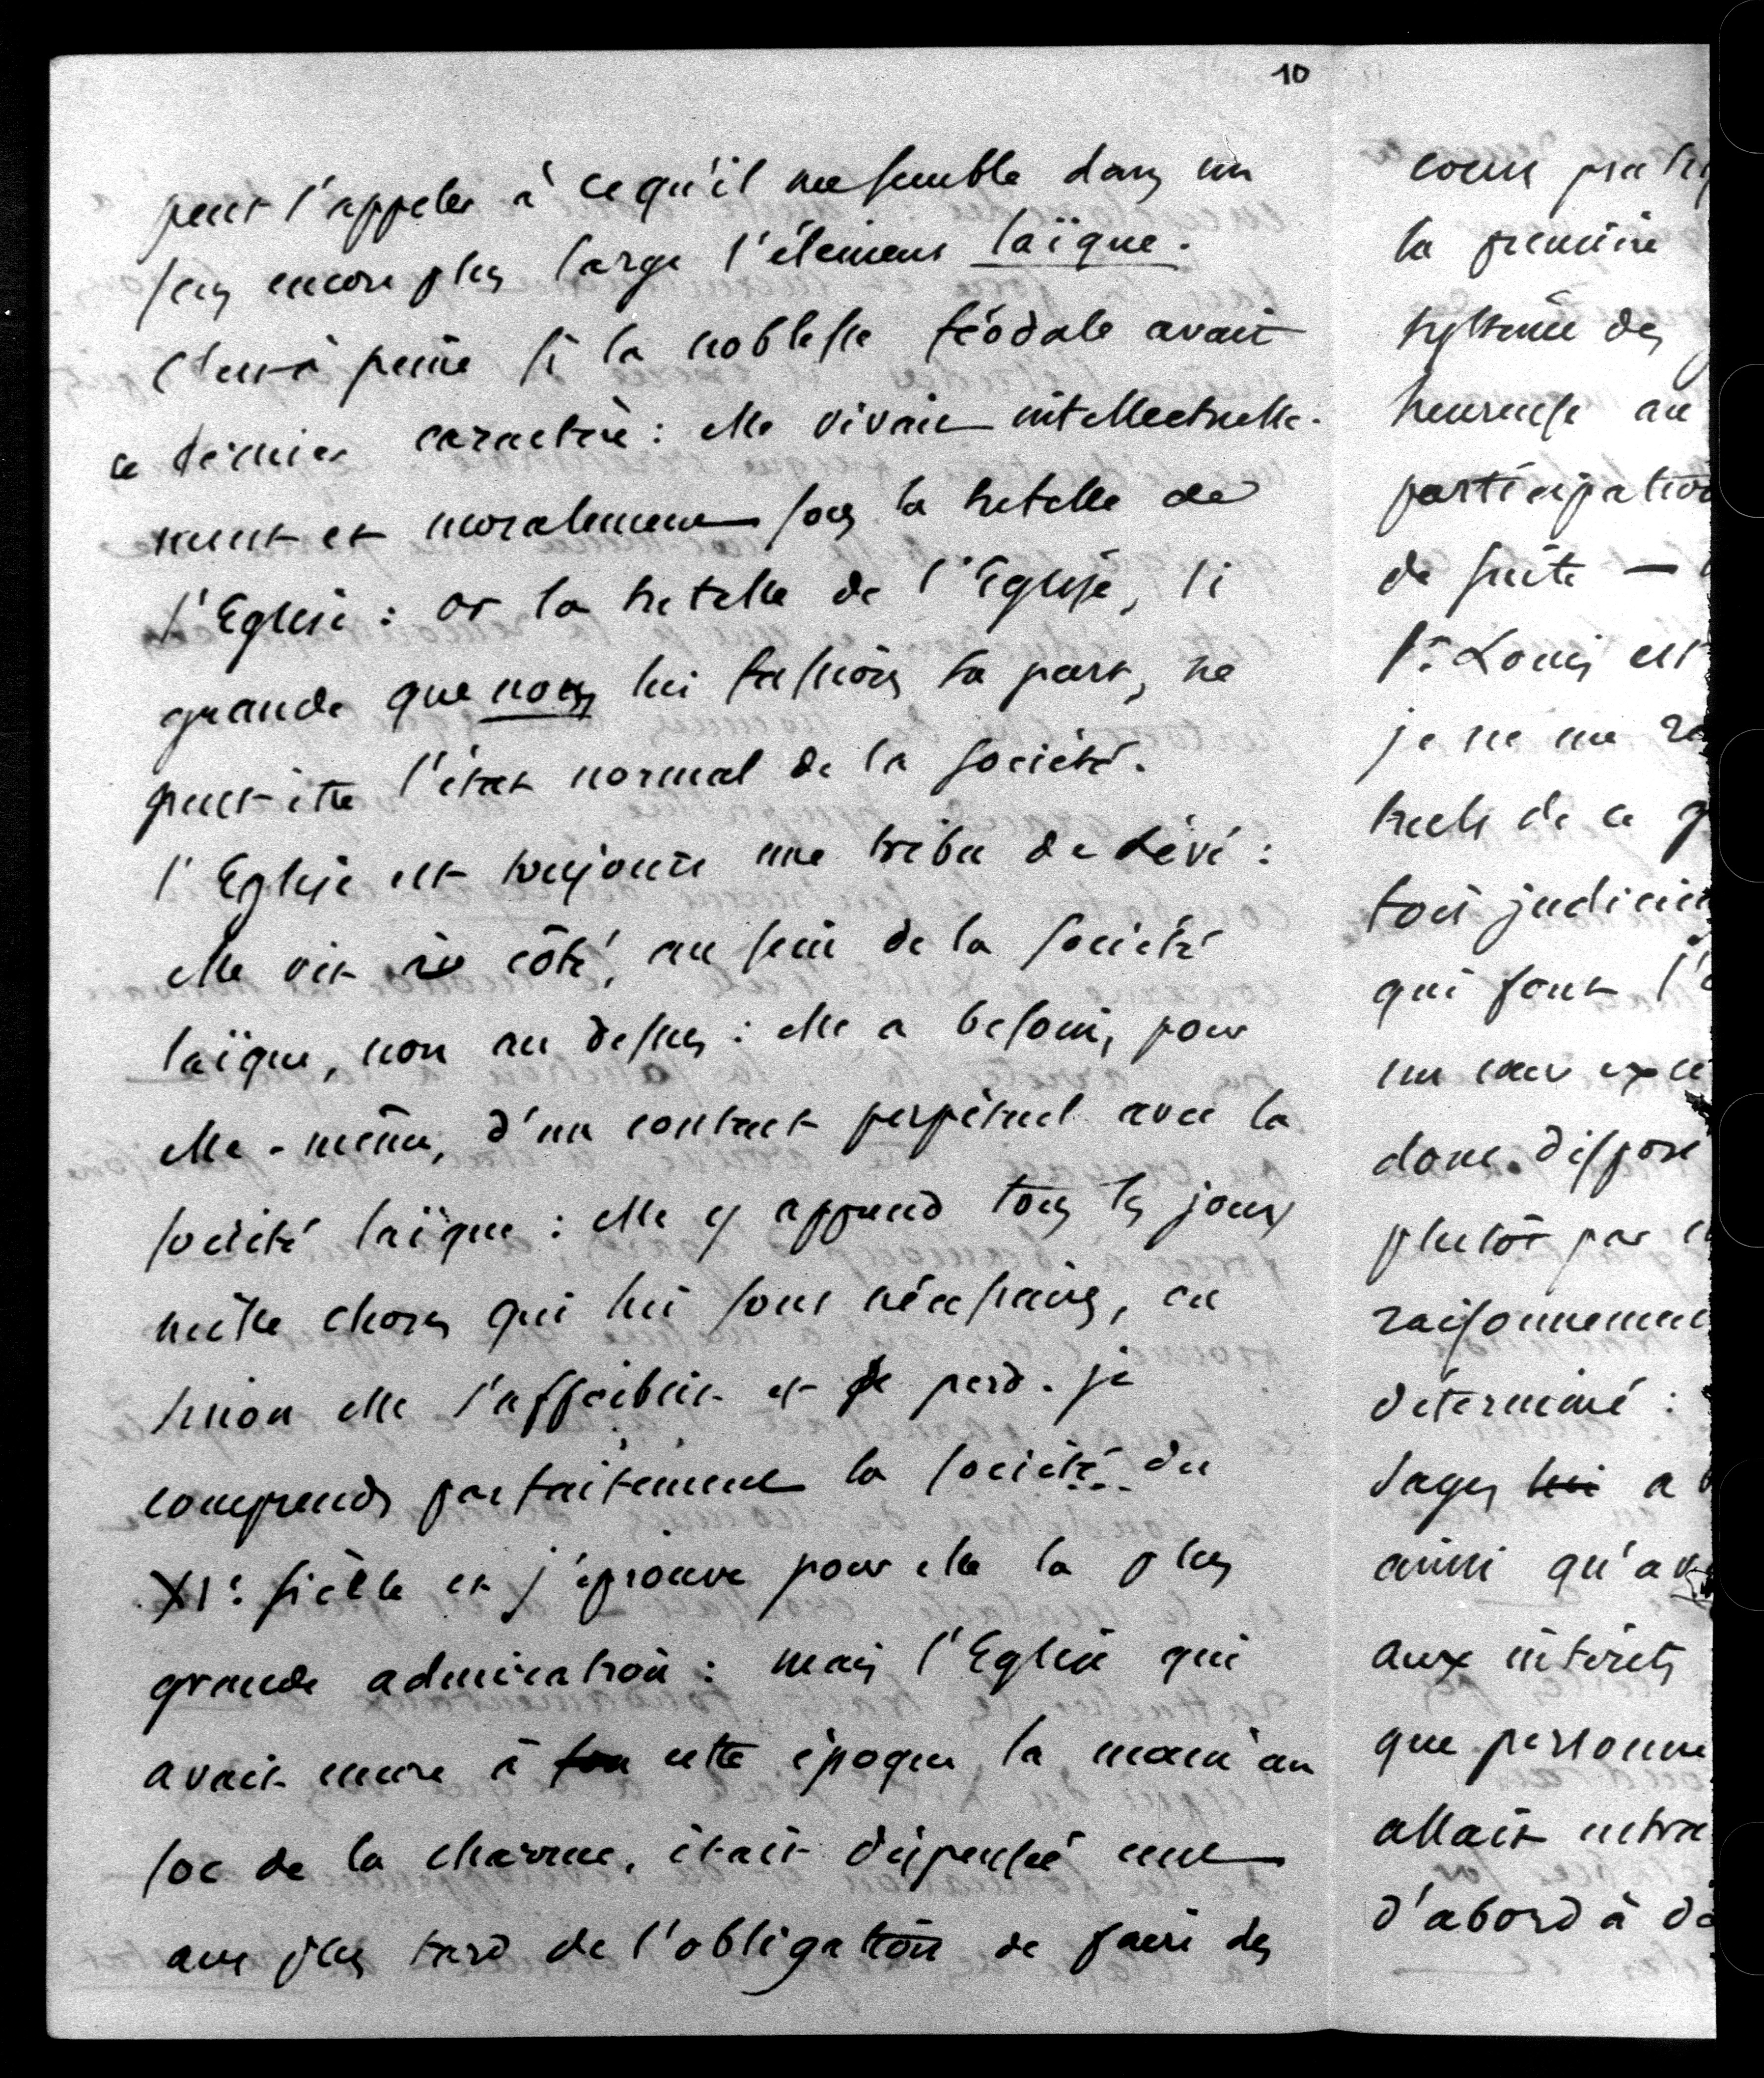 10
peut l'appeler à ce qu'il me semble dans un
sens encore plus large l'élément laïque.
C'est à peine si la noblesse féodale avait
ce dernier caractère : elle vivait intellectuelle-
ment et moralement sous la tutelle de
l'Eglise : or la tutelle de l'Eglise, si
grande que nous lui fassions sa part, ne
peut être l'état normal de la société.
l'Eglise est toujours une tribu de Lévi :
elle vit à côté, au sein de la société
laïque, non au dessus : elle a besoin, pour
elle-même, d'un contact perpétuel avec la
société laïque : elle y apprend tous les jours
mille choses qui lui sont nécessaires, ou
sinon elle s'affaiblit et se perd. je
comprends parfaitement la société du
XIe siècle et j'éprouve pour elle la plus
grande admiration : mais l'Eglise qui
avait encore à cette époque la main au
soc de la charrue, était dispensée cent
ans plus tard de l'obligation de faire des
cours
la première
système des
heureuse au
participation
de suite —
St Louis est
je ne me
de ce
tois
qui font
un
donc dispose
plutôt par
raisonnement
déterminé :
sages lui a
ainsi
aux intérêts
que personne
allait
d'abord à